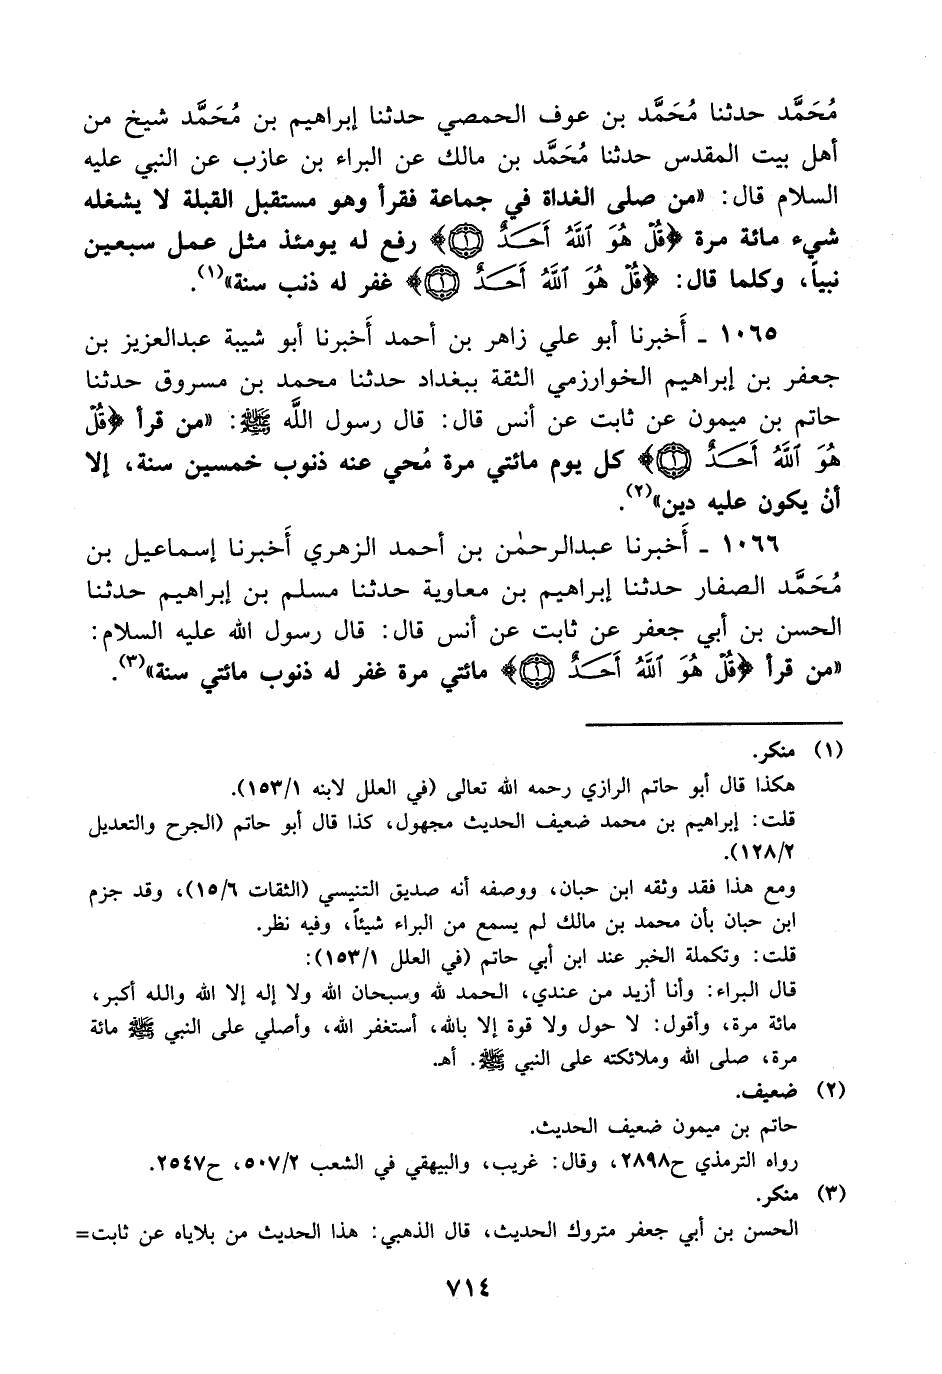 مُحَمَّد حدثنا مُحَمَّد بن عوف الحمصي حدثنا إبراهيم بن مُحَمَّد شيخ من
أهل بيت المقدس حدثنا مُحَمَّد بن مالك عن البراء بن عازب عن النبي عليه
السلام قال: «من صلى الغداة في جماعة فقرأ وهو مستقبل القبلة لا يشغله
شيء مائة مرة ﴿قُلْ هُوَ ٱللَّهُ أَحَدٌ ۝١﴾ رفع له يومئذ مثل عمل سبعين
نبياً، وكلما قال: ﴿قُلْ هُوَ ٱللَّهُ أَحَدٌ ۝١﴾ غفر له ذنب سنة»(١).
١٠٦٥ - أَخبرنا أبو علي زاهر بن أحمد أَخبرنا أبو شيبة عبدالعزيز بن
جعفر بن إبراهيم الخوارزمي الثقة ببغداد حدثنا محمد بن مسروق حدثنا
حاتم بن ميمون عن ثابت عن أنس قال: قال رسول اللَّه ﷺ: «من قرأ ﴿قُلْ
هُوَ ٱللَّهُ أَحَدٌ ۝١﴾ كل يوم مائتي مرة مُحي عنه ذنوب خمسين سنة، إلا
أنْ يكون عليه دين»(٢).
١٠٦٦ - أَخبرنا عبدالرحمٰن بن أحمد الزهري أَخبرنا إسماعيل بن
مُحَمَّد الصفار حدثنا إبراهيم بن معاوية حدثنا مسلم بن إبراهيم حدثنا
الحسن بن أبي جعفر عن ثابت عن أنس قال: قال رسول الله عليه السلام:
«من قرأ ﴿قُلْ هُوَ ٱللَّهُ أَحَدٌ ۝١﴾ مائتي مرة غفر له ذنوب مائتي سنة»(٣).
(١) منكر.
هكذا قال أبو حاتم الرازي رحمه الله تعالى (في العلل لابنه ١٥٣/١).
قلت: إبراهيم بن محمد ضعيف الحديث مجهول، كذا قال أبو حاتم (الجرح والتعديل
١٢٨/٢).
ومع هذا فقد وثقه ابن حبان، ووصفه أنه صديق التنيسي (الثقات ١٥/٦)، وقد جزم
ابن حبان بأن محمد بن مالك لم يسمع من البراء شيئاً، وفيه نظر.
قلت: وتكملة الخبر عند ابن أبي حاتم (في العلل ١٥٣/١):
قال البراء: وأنا أزيد من عندي، الحمد لله وسبحان الله ولا إله إلا الله والله أكبر،
مائة مرة، وأقول: لا حول ولا قوة إلا بالله، أستغفر الله، وأصلي على النبي ﷺ مائة
مرة، صلى الله وملائكته على النبي ﷺ. أهـ.
(٢) ضعيف.
حاتم بن ميمون ضعيف الحديث.
رواه الترمذي ح٢٨٩٨، وقال: غريب، والبيهقي في الشعب ٥٠٧/٢، ح٢٥٤٧.
(٣) منكر.
الحسن بن أبي جعفر متروك الحديث، قال الذهبي: هذا الحديث من بلاياه عن ثابت=
٧١٤